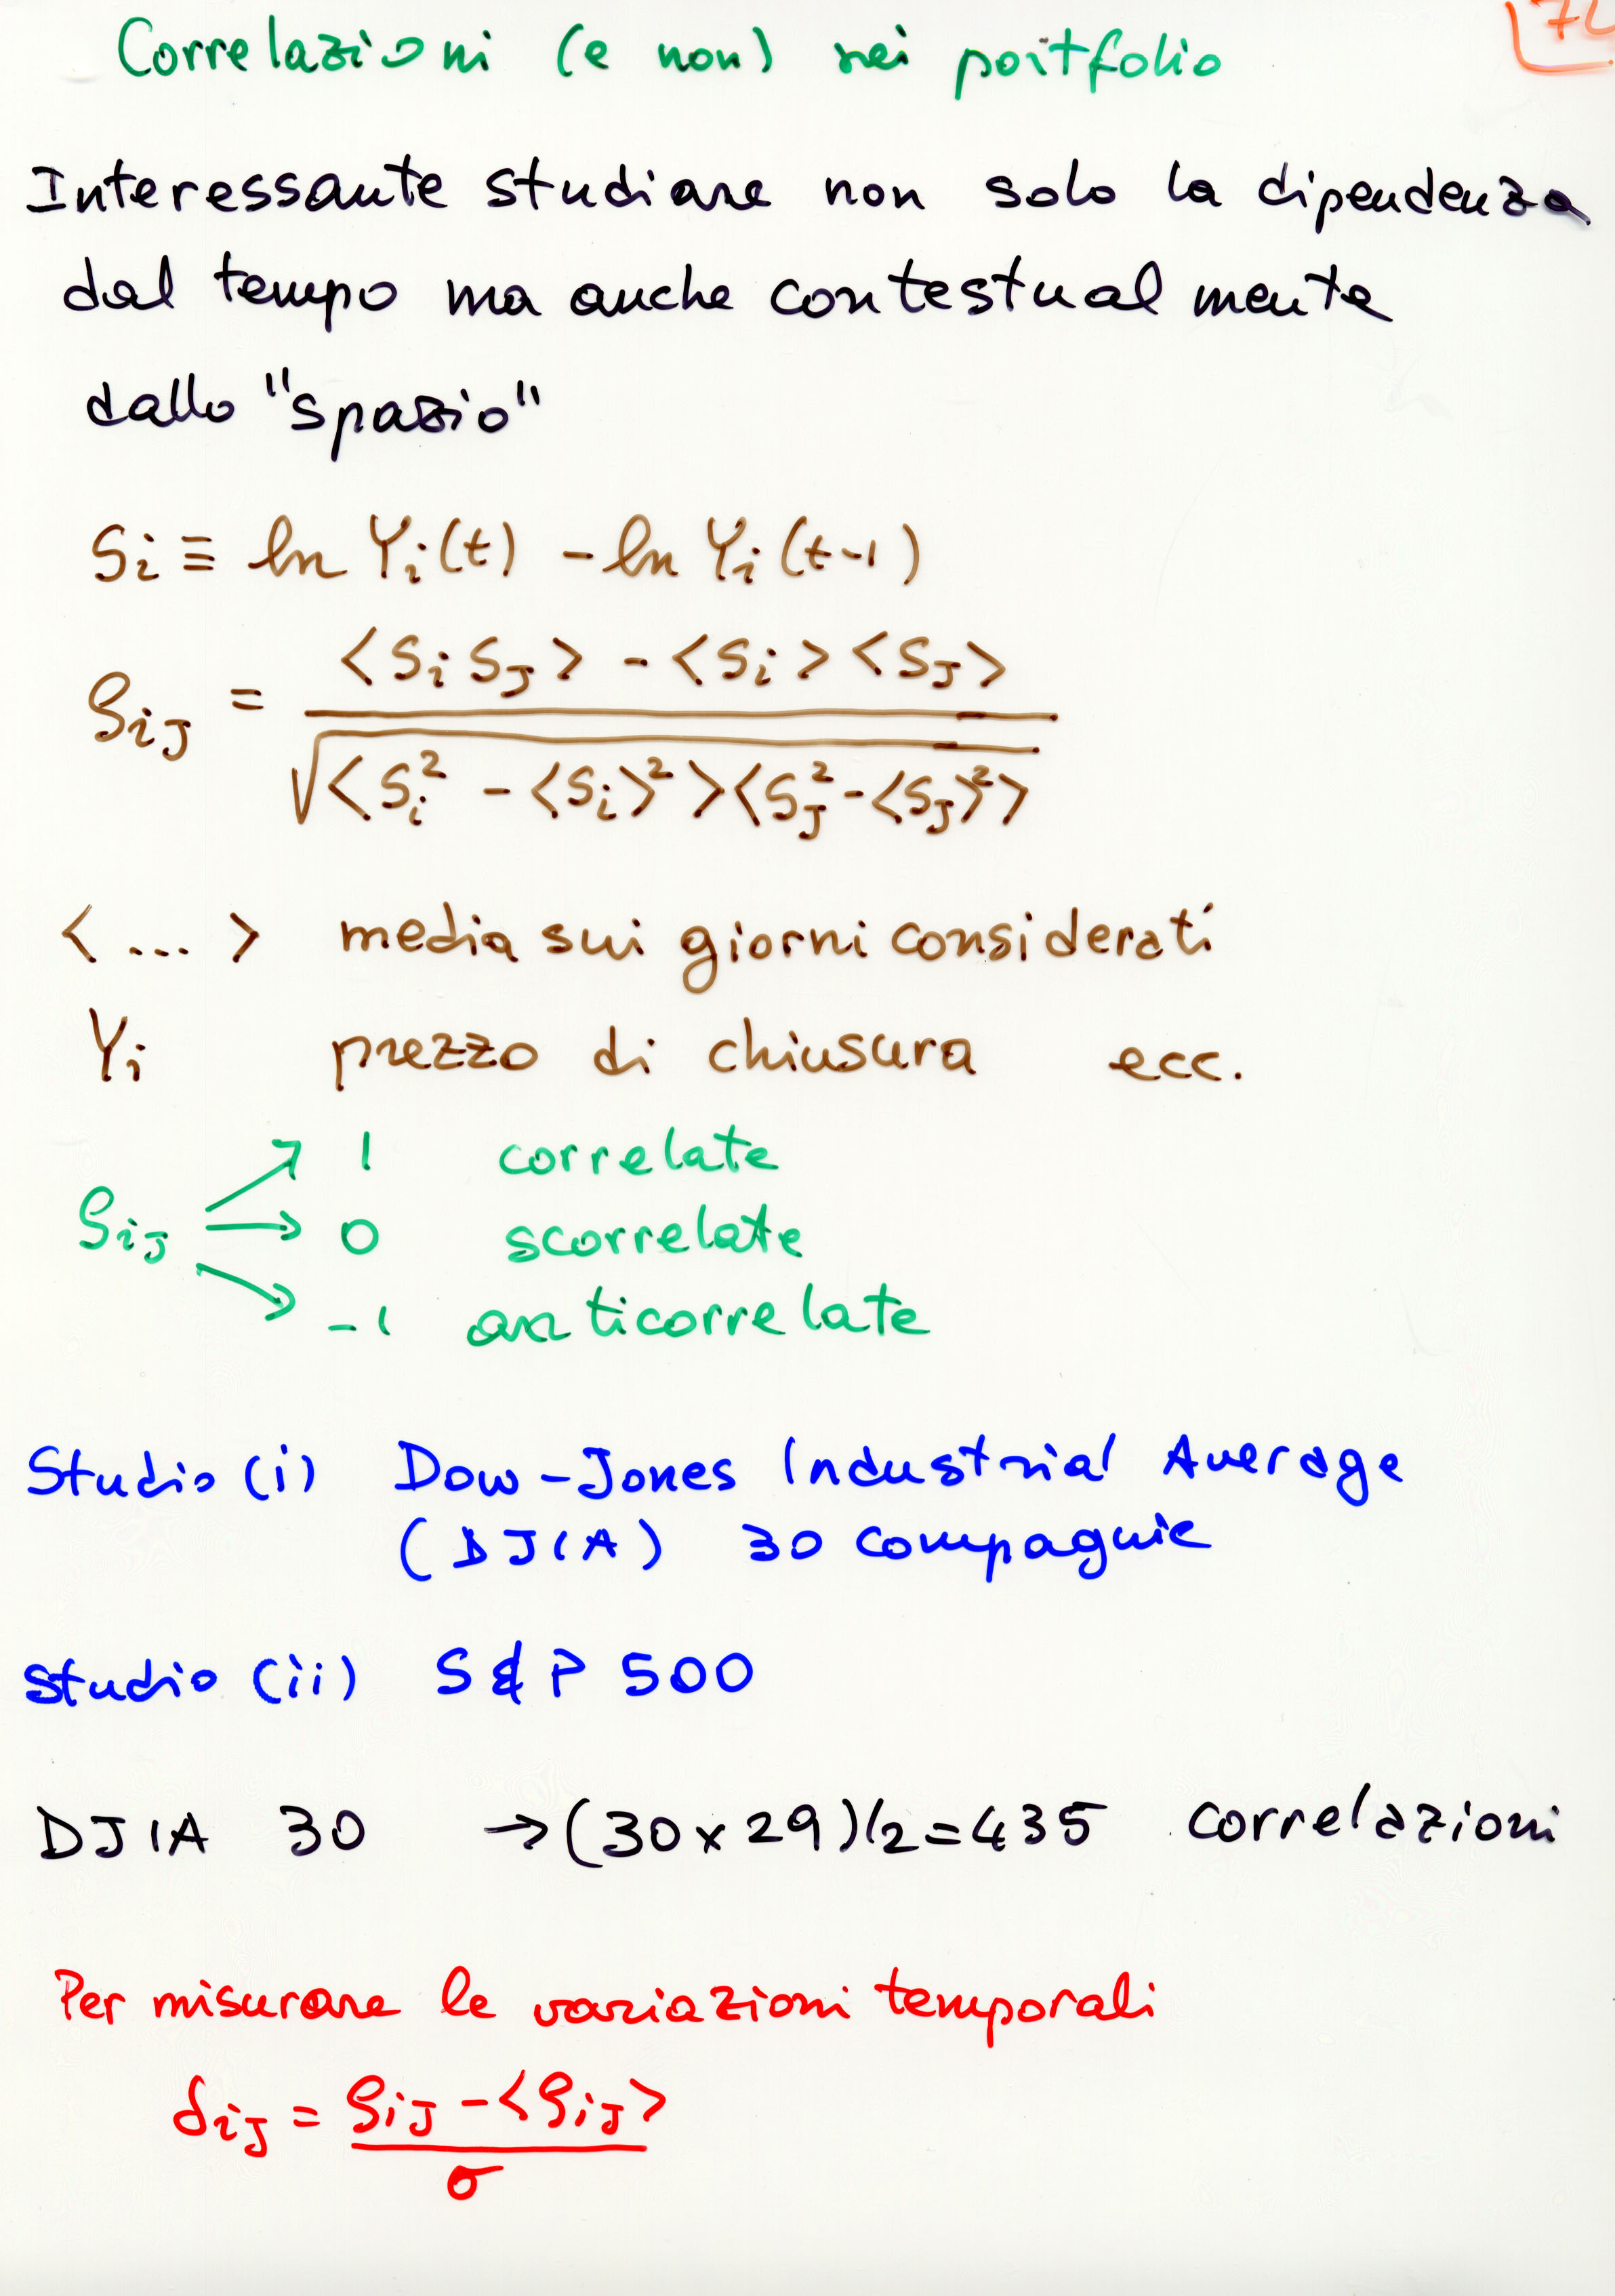 Correlazioni (e non) nei portfolio
Interessante studiare non solo la dipendenza
dal tempo ma anche contestualmente
dallo "spazio"
Si ≡ ln Yi(t) - ln Yi(t-1)
ρiJ = <Si SJ> - <Si><SJ>
√<Si² - <Si>²><SJ² - <SJ>²>
<...> media sui giorni considerati
Yi prezzo di chiusura ecc.
1 correlate
ρiJ → 0 scorrelate
-1 anticorrelate
Studio (i) Dow-Jones Industrial Average
(DJIA) 30 compagnie
Studio (ii) S&P 500
DJIA 30 → (30×29)/2=435 correlazioni
Per misurare le variazioni temporali
δiJ = ρiJ - <ρiJ>
σ